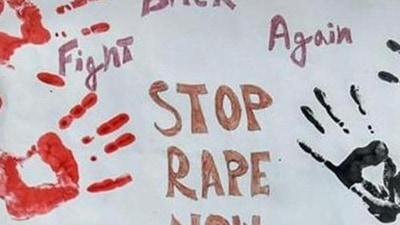 Back
Fight
Again
STOP
RAPE
NOW